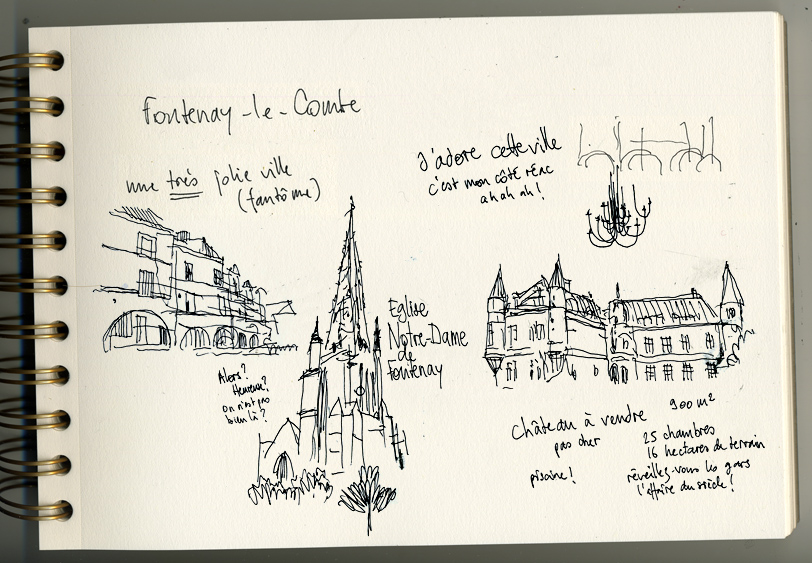 Fontenay-le-Comte
une très jolie ville
(fantôme)
J'adore cette ville
c'est mon côté rénc
ah ah ah!
Eglise
Notre-Dame
de
Fontenay
Alors?
Heureux?
on n'est pas
bien là?
Château à vendre
pas cher
piscine!
900 m²
25 chambres
16 hectares de terrain
réveillez-vous les gars
l'affaire du siècle!